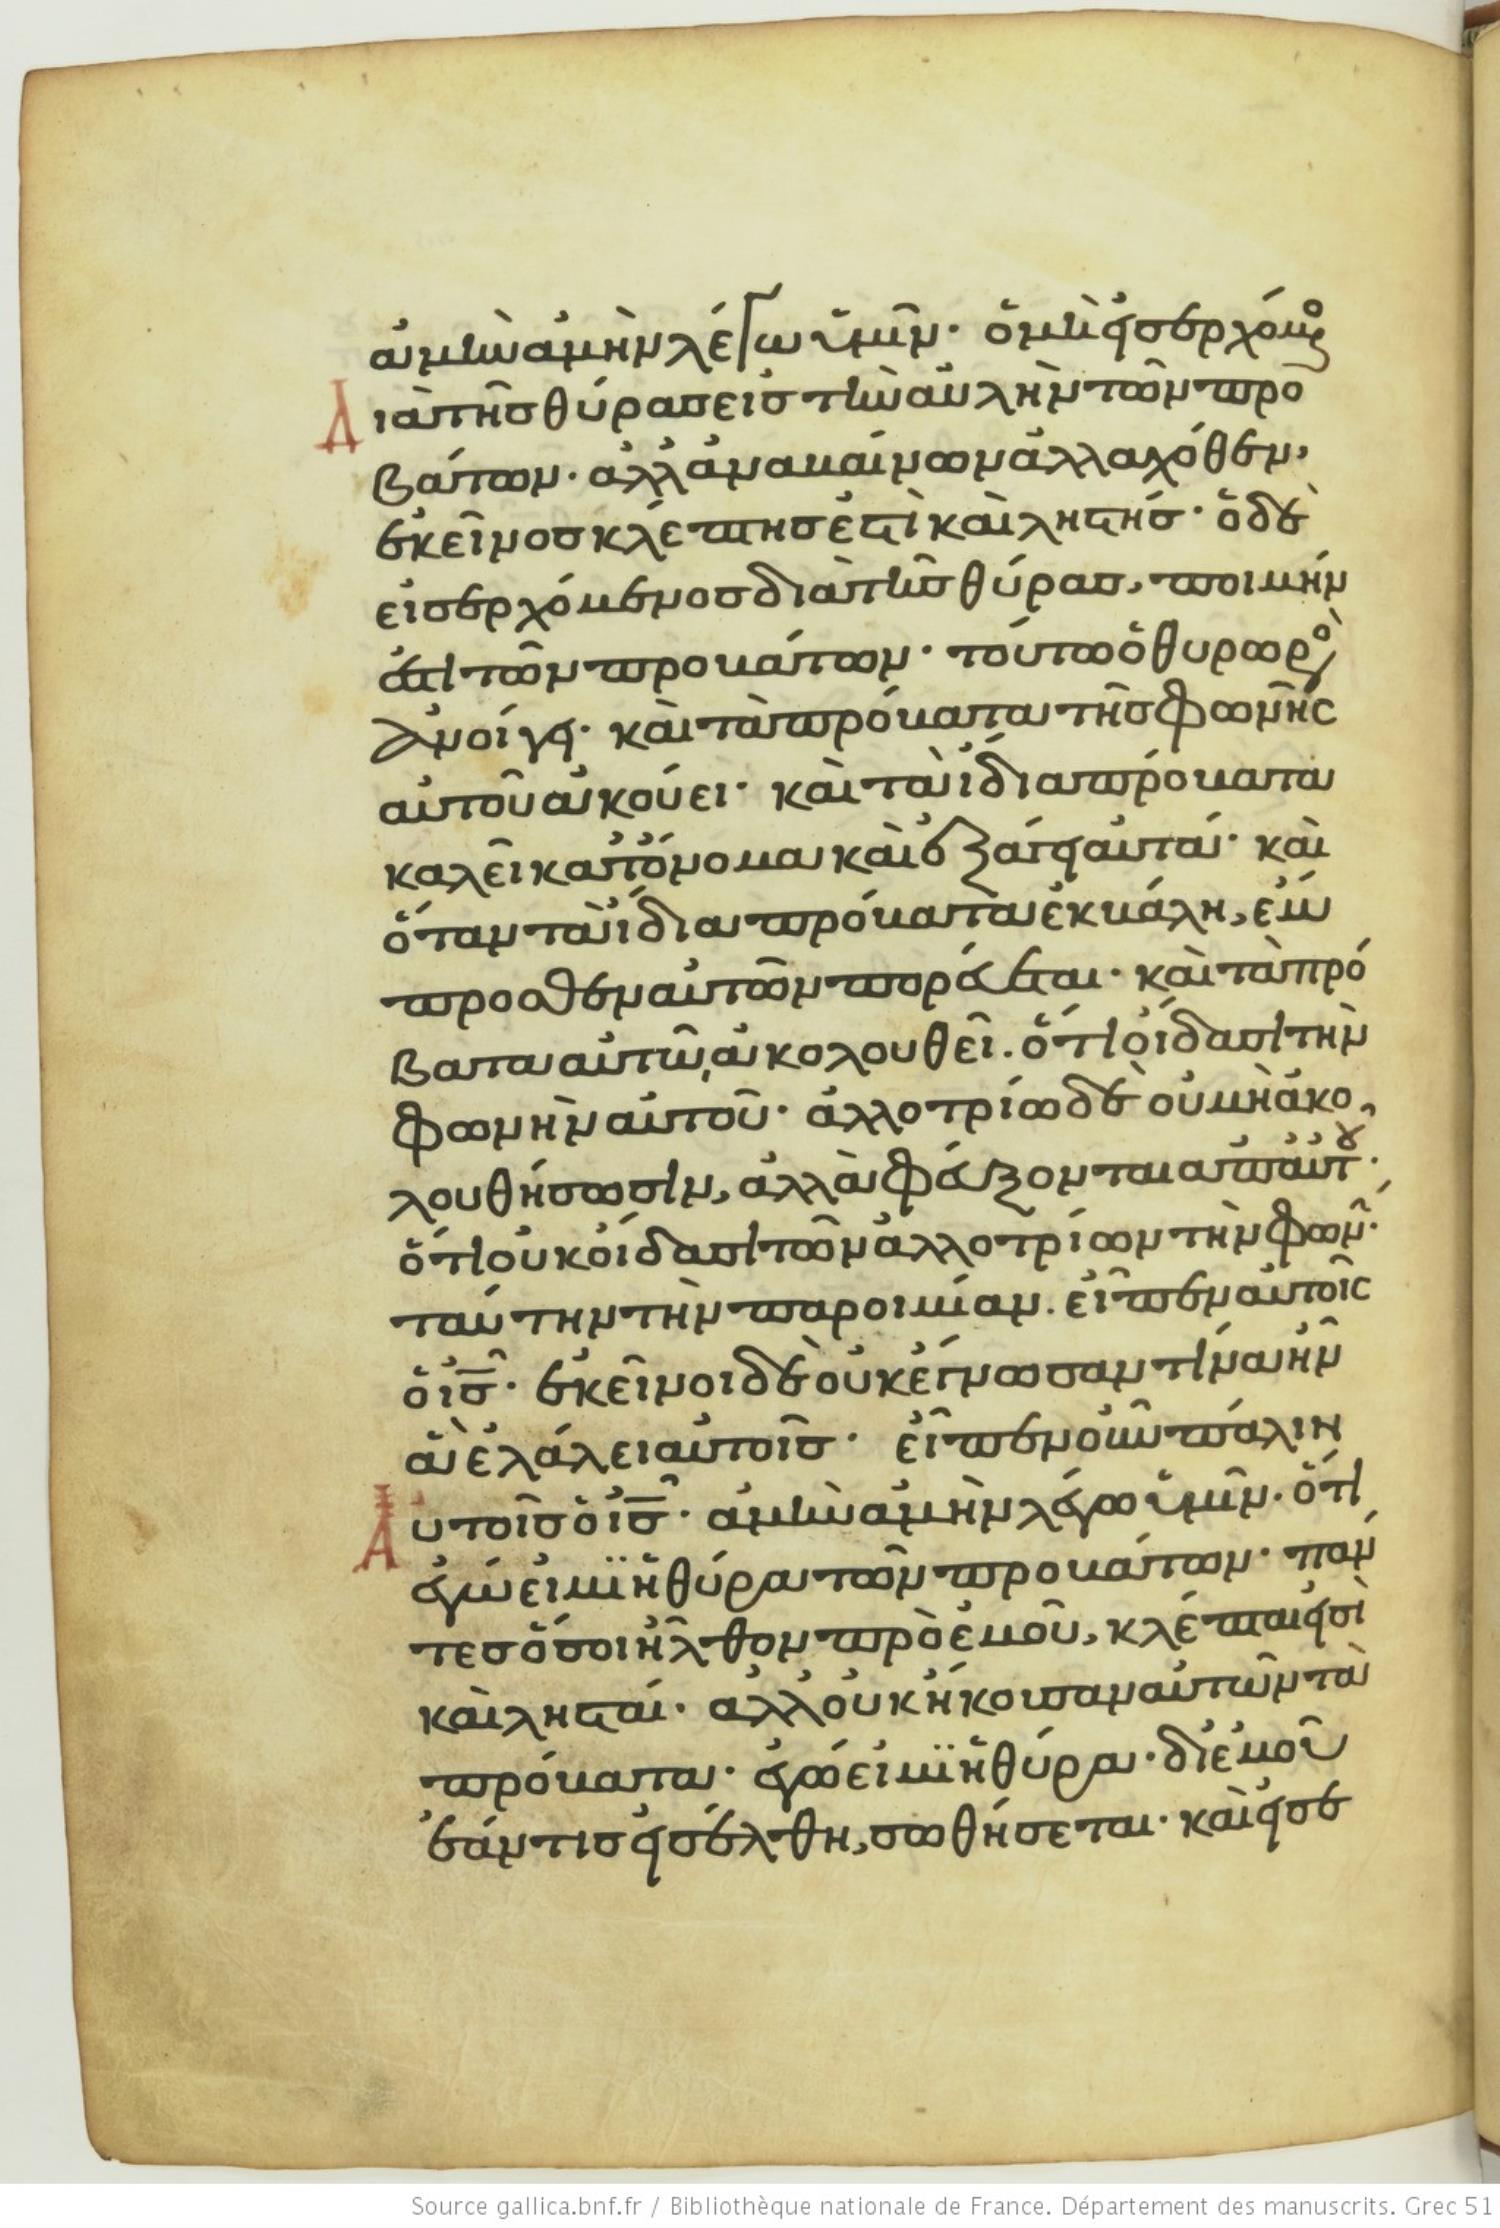 ἀμὴν ἀμὴν λέγω ὑμῖν· ὁ μὴ εἰσερχόμενος
διὰ τῆς θύρας εἰς τὴν αὐλὴν τῶν προ
βάτων· ἀλλὰ ἀναβαίνων ἀλλαχόθεν,
ἐκεῖνος κλέπτης ἐστὶ καὶ ληστής· ὁ δὲ
εἰσερχόμενος διὰ τῆς θύρας, ποιμήν
ἐστι τῶν προβάτων· τούτω ὁ θυρωρὸς
ἀνοίγει· καὶ τὰ πρόβατα τῆς φωνῆς
αὐτοῦ ἀκούει· καὶ τὰ ἴδια πρόβατα
καλεῖ κατ' ὄνομα καὶ ἐξάγει αὐτά· καὶ
ὅταν τὰ ἴδια πρόβατα ἐκβάλη, ἔμ
προσθεν αὐτῶν πορεύεται· καὶ τὰ πρό
βατα αὐτῶ ἀκολουθεῖ· ὅτι οἴδασι τὴν
φωνὴν αὐτοῦ· ἀλλοτρίω δὲ οὐ μὴ ἀκο
λουθήσωσιν, ἀλλὰ φεύξονται ἀπ' αὐτοῦ·
ὅτι οὐκ οἴδασι τῶν ἀλλοτρίων τὴν φων·
ταύτην τὴν παροιμίαν· εἶπεν αὐτοῖς
ὁ ις· ἐκεῖνοι δὲ οὐκ ἔγνωσαν τίνα ἦν
ἃ ἐλάλει αὐτοῖς· εἶπεν οὖν πάλιν
αὐτοῖς ὁ ις· ἀμὴν ἀμὴν λέγω ὑμῖν· ὅτι
ἐγώ εἰμϊ ἡ θύρα τῶν προβάτων· πάν
τες ὅσοι ἦλθον πρὸ ἐμοῦ, κλέπται εἰσὶ
καὶ λησταί· ἀλλ' οὐκ ἤκουσαν αὐτῶν τὰ
πρόβατα· ἐγώ εἰμϊ ἡ θύρα· δι' ἐμοῦ
ἐάν τις εἰσέλθη, σωθήσεται· καὶ εἰσε
Source gallica.bnf.fr / Bibliothèque nationale de France. Département des manuscrits. Grec 51